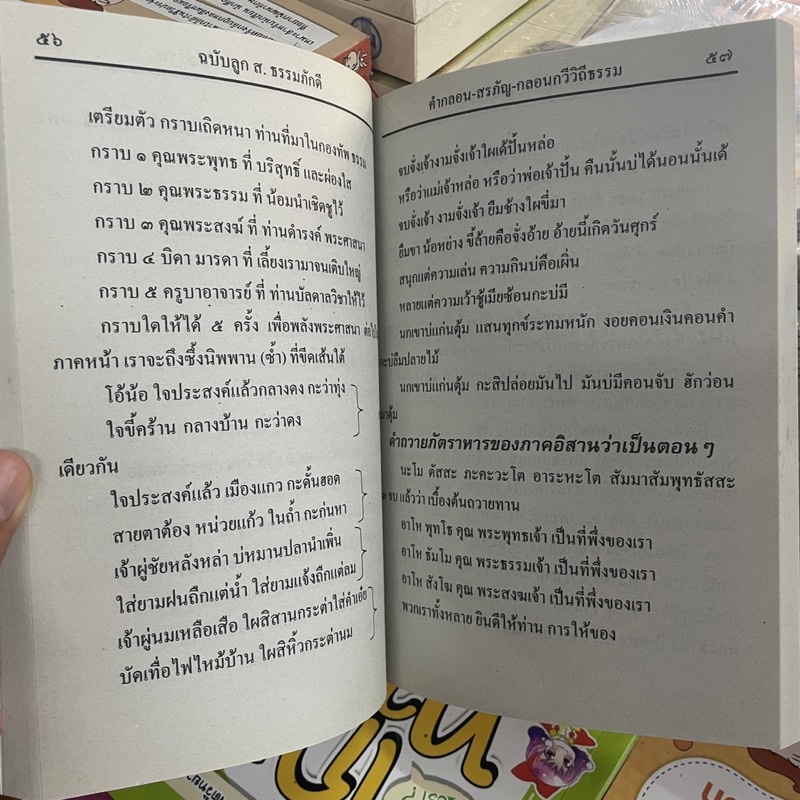 ๕๖
ฉบับลูก ส. ธรรมภักดี
เตรียมตัว กราบเถิดหนา ท่านที่มาในกองทัพ ธรรม
กราบ ๑ คุณพระพุทธ ที่ บริสุทธิ์ และผ่องใส
กราบ ๒ คุณพระธรรม ที่ น้อมนำเชิดชูไว้
กราบ ๓ คุณพระสงฆ์ ที่ ท่านดำรงค์ พระศาสนา
กราบ ๔ บิดา มารดา ที่ เลี้ยงเรามาจนเติบใหญ่
กราบ ๕ ครูบาอาจารย์ ที่ ท่านบัลดาลวิชาให้ไว้
กราบใดให้ได้ ๕ ครั้ง เพื่อพลังพระศาสนา ต่อไป
ภาคหน้า เราจะถึงซึ้งนิพพาน (ซ้ำ) ที่ขีดเส้นใต้
โอ้น้อ ใจประสงค์แล้วกลางดง กะว่าทุ่ง
ใจขี้คร้าน กลางบ้าน กะว่าดง
เดียวกัน
ใจประสงค์แล้ว เมืองแกว กะดั้นฮอด
สายตาต้อง หน่วยแก้ว ในถ้ำ กะก่นหา
เจ้าผู้ชัยหลังหล่า บ่หมานปลานำเพิ่น
ใส่ยามฝนถืกแต่น้ำ ใส่ยามแจ้งถืกแต่ลม
เจ้าผู้นมเหลือเสือ ใผสิสานกระต่าใส่คำเอ๋ย
บัดเทื่อไฟไหม้บ้าน ใผสิหิ้วกระต่านม
๕๗
คำกลอน-สรภัญ-กลอนกวีวิถีธรรม
จบจั่งเจ้างามจั่งเจ้าใผเด้ปั้นหล่อ
หรือว่าแม่เจ้าหล่อ หรือว่าพ่อเจ้าปั้น คืนนั้นบ่ได้นอนนั้นเด้
จบจั่งเจ้า งามจั่งเจ้า ยืมช้างใผขี่มา
ยืมขา น้อหย่าง ขี้ล้ายคือจั่งอ้าย อ้ายนี้เกิดวันศุกร์
สนุกแต่ความเล่น ความกินบ่คือเผิ่น
หลายแต่ความเว้าชู้เมียซ้อนกะบ่มี
นกเขาบ่แก่นตุ้ม แสนทุกข์ระทมหนัก งอยคอนเงินคอนคำ
กะบ่ลืมปลายไม้
นกเขาบ่แก่นตุ้ม กะสิปล่อยมันไป มันบ่มีคอนจับ ฮักว่อน
มาตุ้ม
คำถวายภัตราหารของภาคอิสานว่าเป็นตอน ๆ
นะโม ตัสสะ ภะคะวะโต อาระหะโต สัมมาสัมพุทธัสสะ
๓ จบ แล้วว่า เบื้องต้นถวายทาน
อาโห พุทโธ คุณ พระพุทธเจ้า เป็นที่พึ่งของเรา
อาโห ธัมโม คุณ พระธรรมเจ้า เป็นที่พึ่งของเรา
อาโห สังโฆ คุณ พระสงฆเจ้า เป็นที่พึ่งของเรา
พวกเราทั้งหลาย ยินดีให้ท่าน การให้ของ